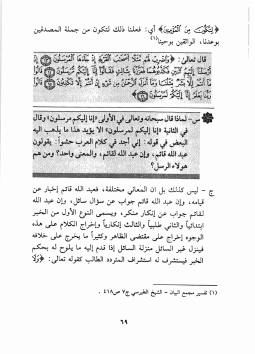 ﴿لِتَكُونَ مِنَ الْمُؤْمِنِينَ﴾ أي: فعلنا ذلك لتكون من جملة المصدقين
بوعدنا، الواثقين بوحينا(١)
قال تعالى: ﴿وَاضْرِبْ لَهُم مَّثَلًا أَصْحَابَ الْقَرْيَةِ إِذْ جَاءَهَا الْمُرْسَلُونَ إِذْ
أَرْسَلْنَا إِلَيْهِمُ اثْنَيْنِ فَكَذَّبُوهُمَا فَعَزَّزْنَا بِثَالِثٍ فَقَالُوا إِنَّا إِلَيْكُم مُّرْسَلُونَ قَالُوا
مَا أَنتُمْ إِلَّا بَشَرٌ مِّثْلُنَا وَمَا أَنزَلَ الرَّحْمَٰنُ مِن شَيْءٍ إِنْ أَنتُمْ إِلَّا تَكْذِبُونَ قَالُوا
رَبُّنَا يَعْلَمُ إِنَّا إِلَيْكُمْ لَمُرْسَلُونَ﴾
س - لماذا قال سبحانه وتعالى في الأولى ﴿إنا إليكم مرسلون﴾ و
في الثانية ﴿إنا إليكم لمرسلون﴾ ألا يؤيد هذا ما يذهب اليه
البعض في قوله: إني أجد في كلام العرب حشواً، يقولون
عبد الله قائم، وإن عبد الله لقائم، والمعنى واحد؟ ومن هم
هولاء الرسل؟
ج - ليس كذلك بل ان المعاني مختلفة، فعبد الله قائم إخبار عن
قيامه، وإن عبد الله قائم جواب عن سؤال سائل، وإن عبد الله
لقائم جواب عن إنكار منكر، ويسمى النوع الأول من الخبر
ابتدائياً والثاني طلبياً والثالث إنكارياً وإخراج الكلام على هذه
الوجوه إخراج على مقتضى الظاهر وكثيراً ما يخرج على خلافه
فينزل غير السائل منزلة السائل إذا قدم إليه ما يلوح له بحكم
الخبر فيستشرف له استشراف المتردد الطالب كقوله تعالى: ﴿وَلَا
(١) تفسير مجمع البيان - الشيخ الطبرسي ج٧ ص٤١٨.
٦٩